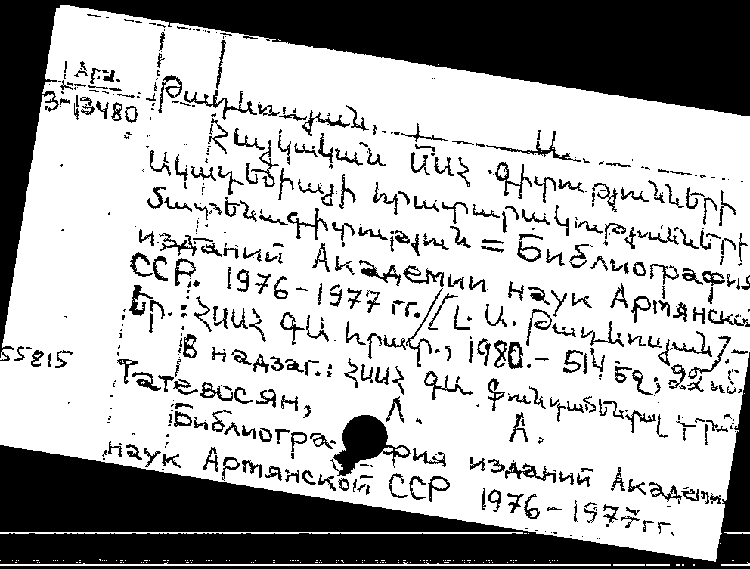 Арм.
З-13480
Թադևոսյան, Լ. Ա.
Հայկական ՍՍՀ գիտությունների
ակադեմիայի հրատարակությունների
մատենագիտություն = Библиография
изданий Академии наук Армянской
ССР. 1976-1977 гг. / [Լ. Ա. Թադևոսյան]. —
Եր.: ՀՍՍՀ ԳԱ հրատ., 1980. - 514 էջ; 22 սմ.
55815
В надзаг.: ՀՍՍՀ ԳԱ
Татевосян, Л. А.
Библиография изданий Академии
наук Армянской ССР 1976-1977 гг.